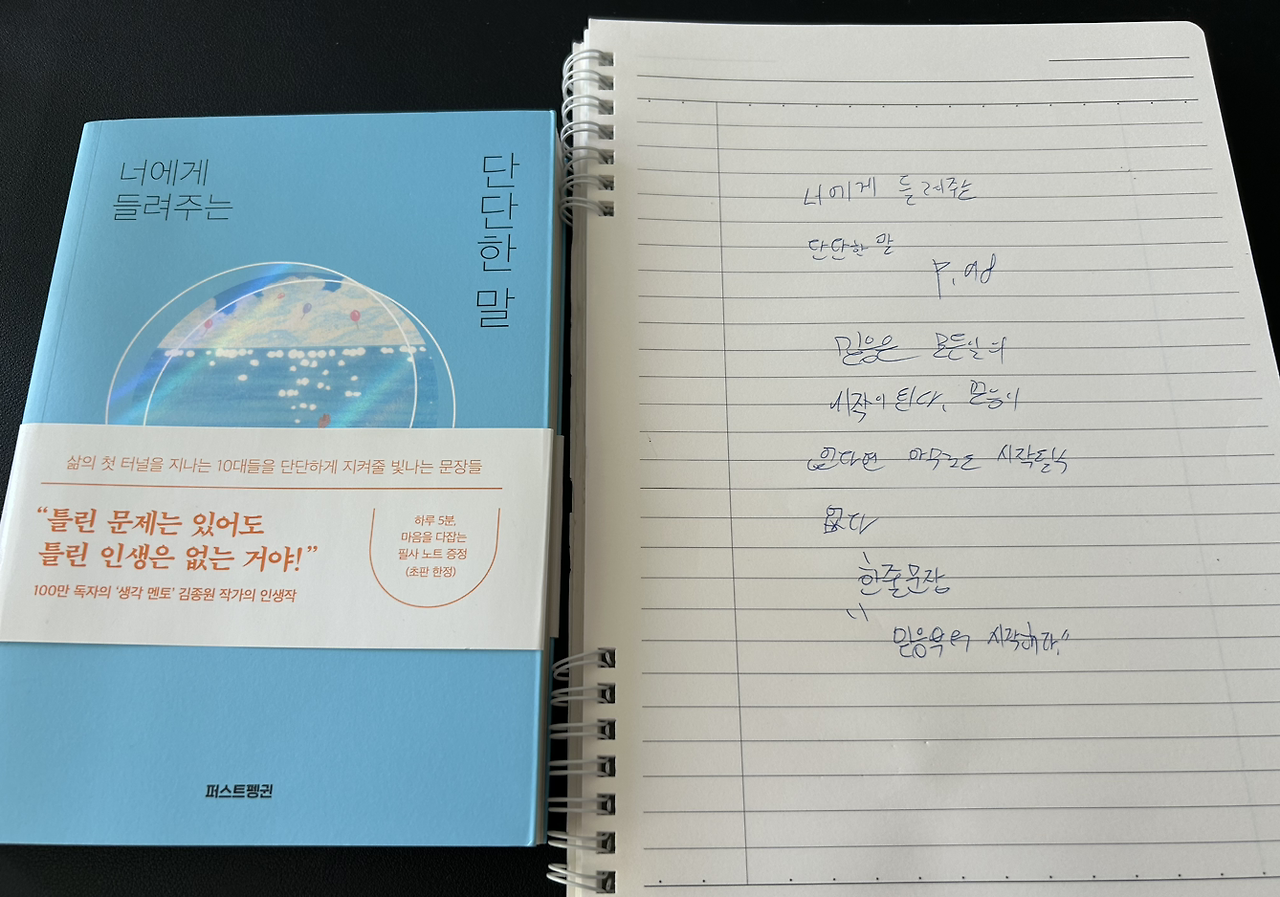 너에게
들려주는
단단한 말
삶의 첫 터널을 지나는 10대들을 단단하게 지켜줄 빛나는 문장들
“틀린 문제는 있어도
틀린 인생은 없는 거야!”
100만 독자의 ‘생각 멘토’ 김종원 작가의 인생작
하루 5분,
마음을 다잡는
필사 노트 증정
(초판 한정)
퍼스트펭귄
너에게 들려주는
단단한 말
믿음은 모든일의
시작이 된다. 믿음이
없다면 아무것도 시작될수
없다
한줄문장
"믿음부터 시작해라."